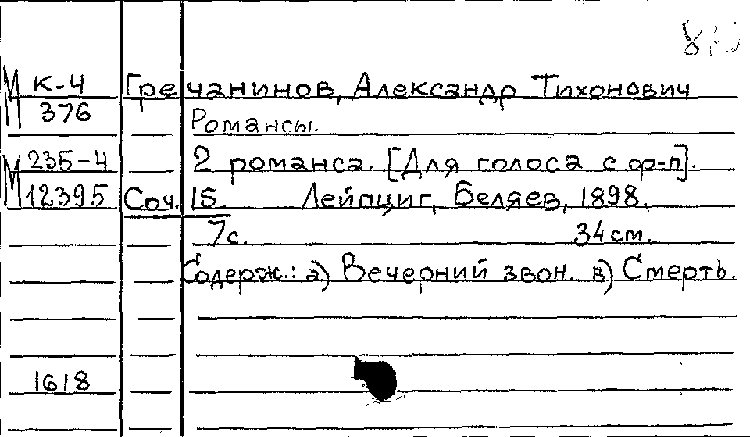 М К-4 Гречанинов, Александр Тихонович
376 Романсы.
М 235-4 2 романса. [Для голоса с ф-п].
12395 Соч. 15. Лейпциг, Беляев, 1898.
7с. 34см.
Содерж.: а) Вечерний звон. в) Смерть.
1618